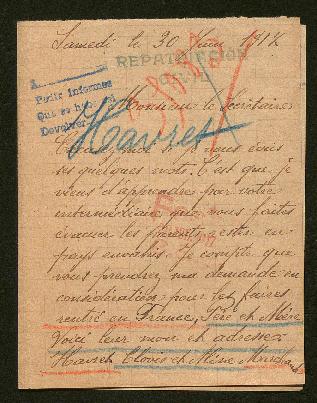 Samedi le 30 Juin 1917
REPATRIACION
CIVIL
A
Pedir informes
Que se ha
Devolver
Monsieur le Secrétaire
Havret
si je vous écris
ses quelques mots. C'est que je
viens d'apprendre par votre
intermédiaire que vous faites
évacuer les parents restés en
pays envahis. Je compte que
vous prendrez ma demande en
considération pour les faires
rentré en France, Père et Mère
Voici leur nom et adresse
Havret Clovis et Mère